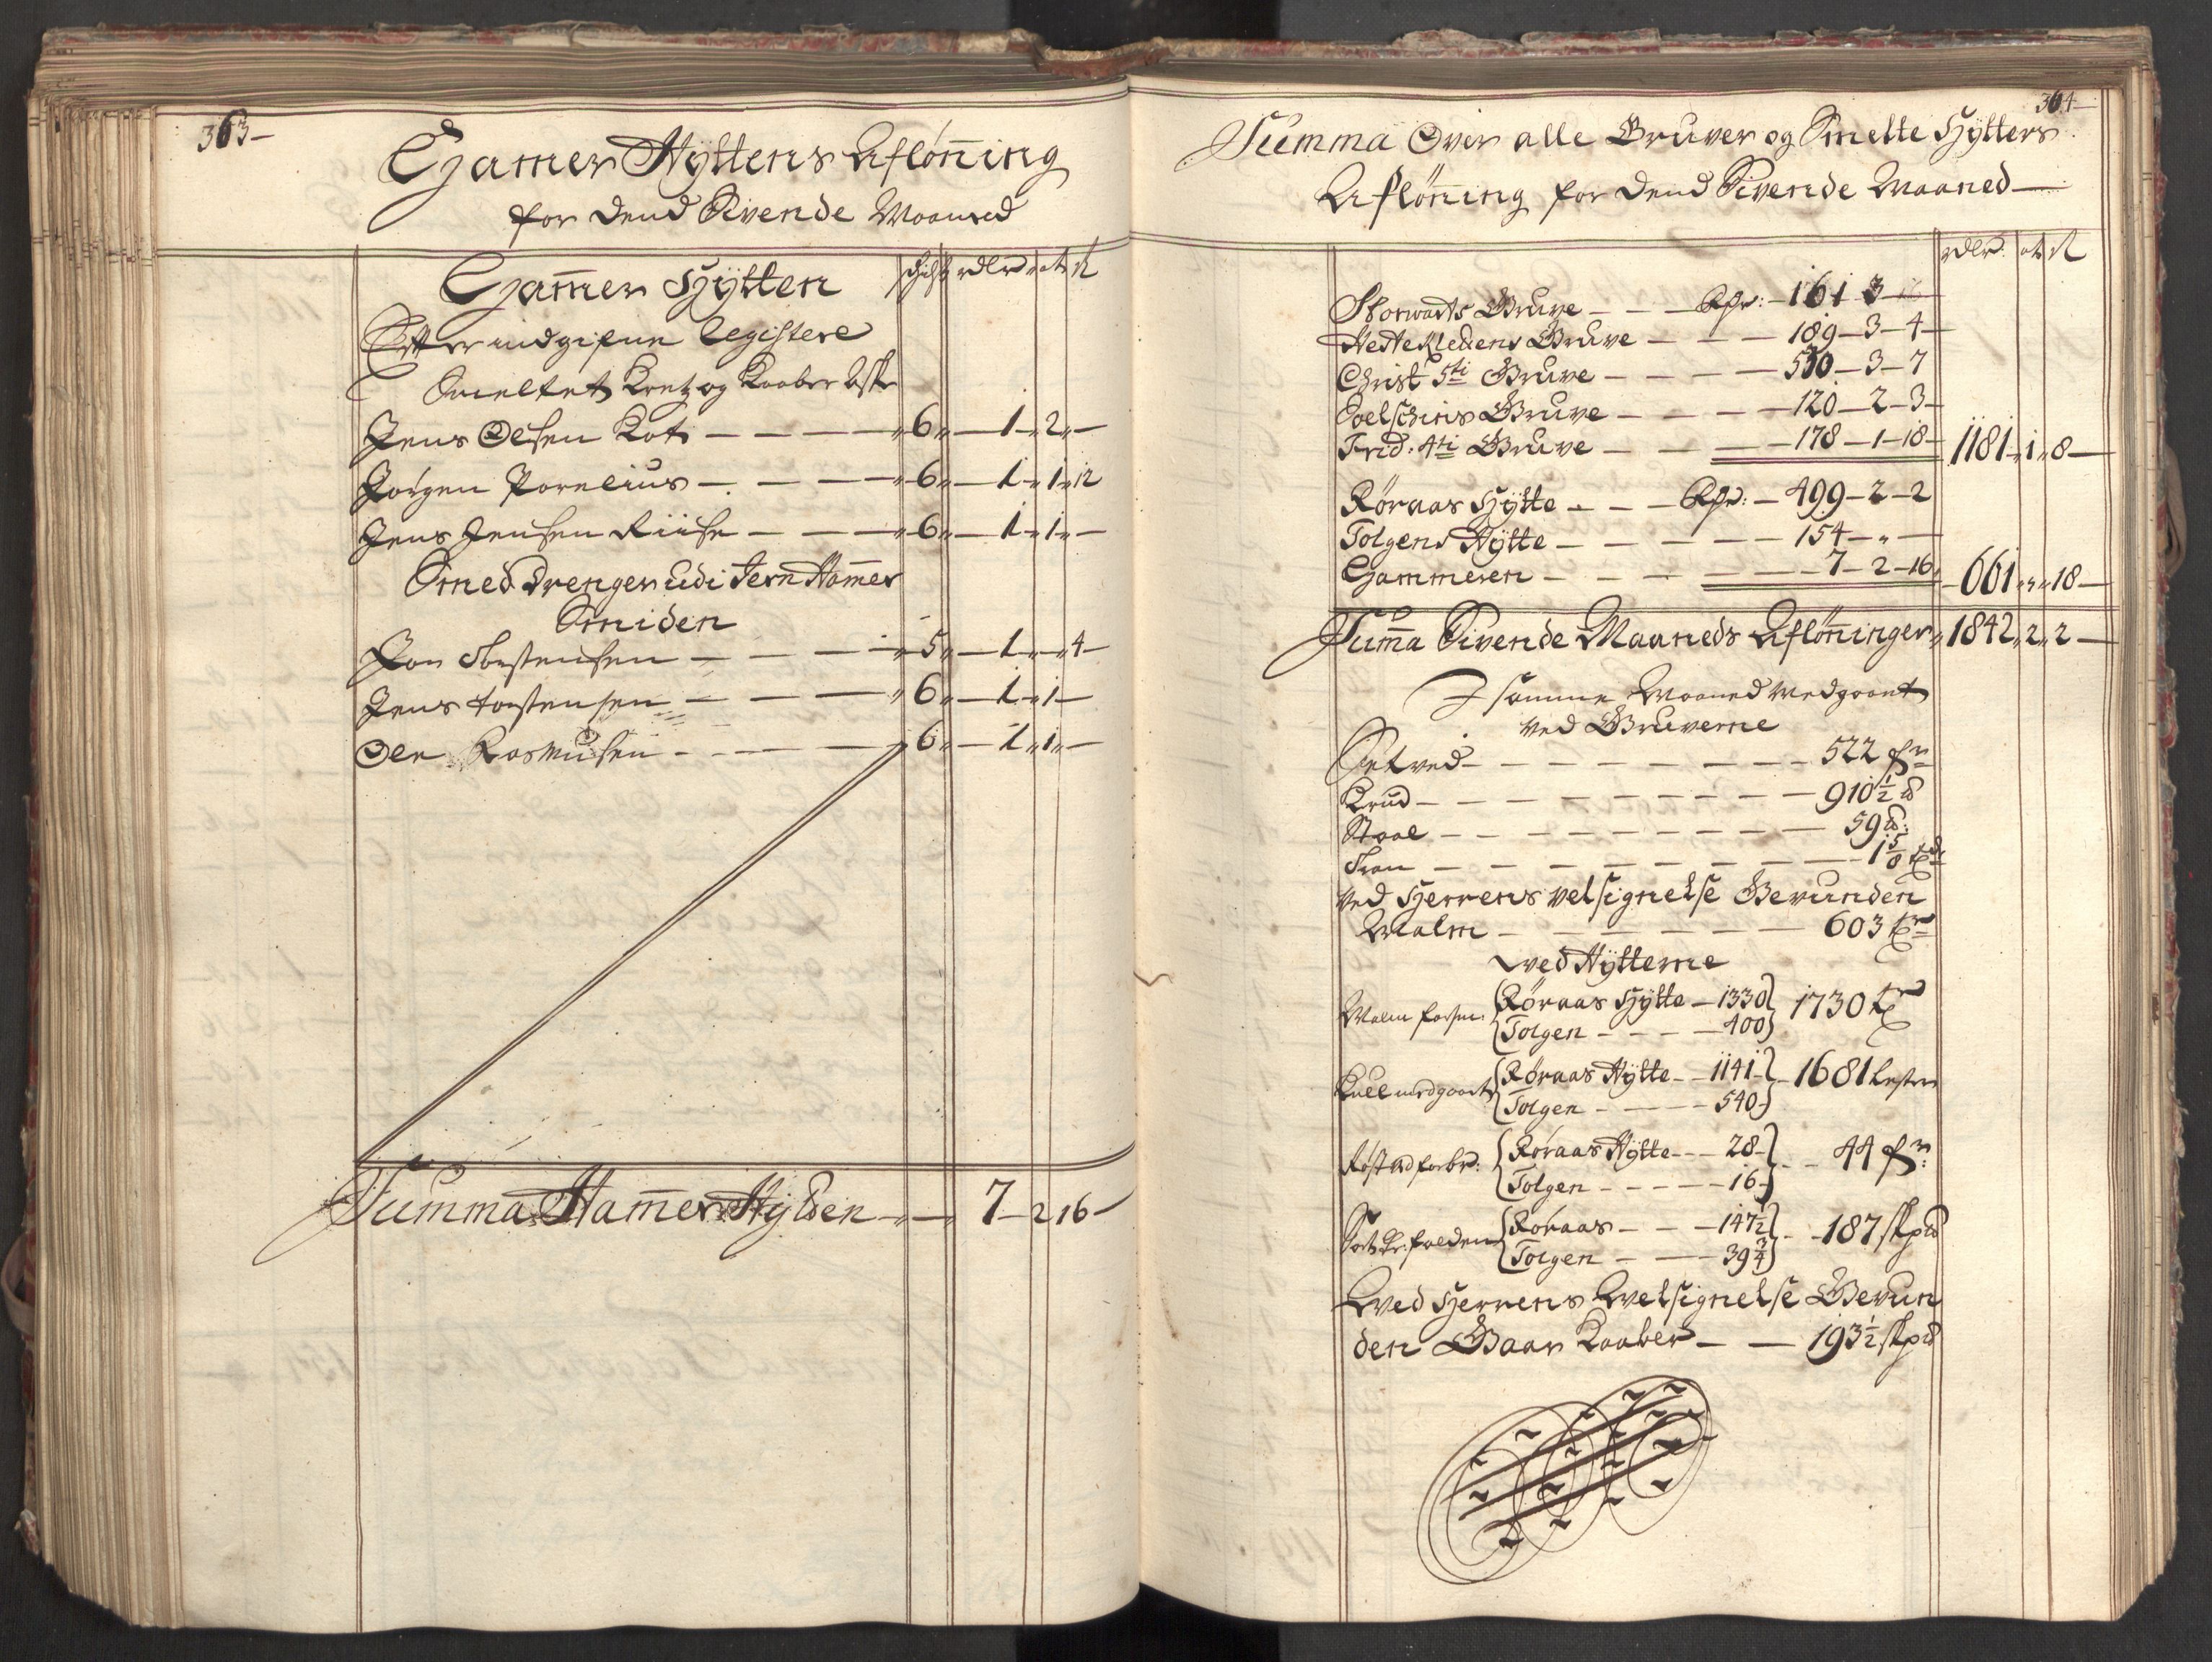 363
Hamer Hyttens Aflønning
for Dend Sivende Maaned
Hammer Hytten rdlr ort ß
Efter indgifne Registere
Smeltet Kretz og Kaaber
Jens Olsen Kok - - - 6 - 1 - 2 -
Jørgen Pornelius - - - 6 - 1 - 1 - 12
Jens Jensen Riise - - - 6 - 1 - 1 -
Smed Drenger udi Jern Hamer
Smiden
Jon Torstensen - - - 5 - 1 - - 4 -
Jens Torstensen - - - 6 - 1 - 1 -
Ole Rasmusen - - - 6 - 1 - 1 -
Summa Hamer Hytten - - 7 - 2 16 -
364
Summa Over alle Gruver og Smelte Hytters
Afløning for Dend Sivende Maaned
rdlr ort ß
Storwarts Gruve - - - Rdr: - 161 - 3 -
Hestekledens Gruve - - - 189 - 3 - 4
Christ 5ti Gruve - - - 530 - 3 - 7
Qvelschins Gruve - - - 120 - 2 - 3
Frid: 4ti Gruve - - - 178 - 1 - 18 - 1181 - 1 - 8
Røraas Hytte - - - Rdr: - 499 - 2 - 2
Tolgens Hytte - - - 154 - " -
Hammeren - - - 7 - 2 - 16 - 661 " " 18
Summa Sivende Maaneds Afløninger 1842 " 2 " 2
I samme Maaned medgaaet
ved Gruverne
Setved - - - 522 fn
Krud - - - 910 1/2 ℔
Staal - - - 59 ℔
Tran - - - 1 5/8
ved Herrens velsignelse Bevunden
Malm - - - 603 tr
ved Hytterne
Malm Røraas Hytte - 1330 1730 tr
Tolgen - - - 400
Kull medgaaet Røraas Hytte - - 1141 - 1681 Lester
Tolgen - - - 540
Røstved forbr: Røraas Hytte - - - 28 - 44 fn:
Tolgen - - - 16
Røraas - - - 147 1/2 - 187 skp℔
Tolgen - - - 39 3/4
ved Herrens velsignelse Bevun
den Gaar Kaaber - - 193 1/2 skp℔